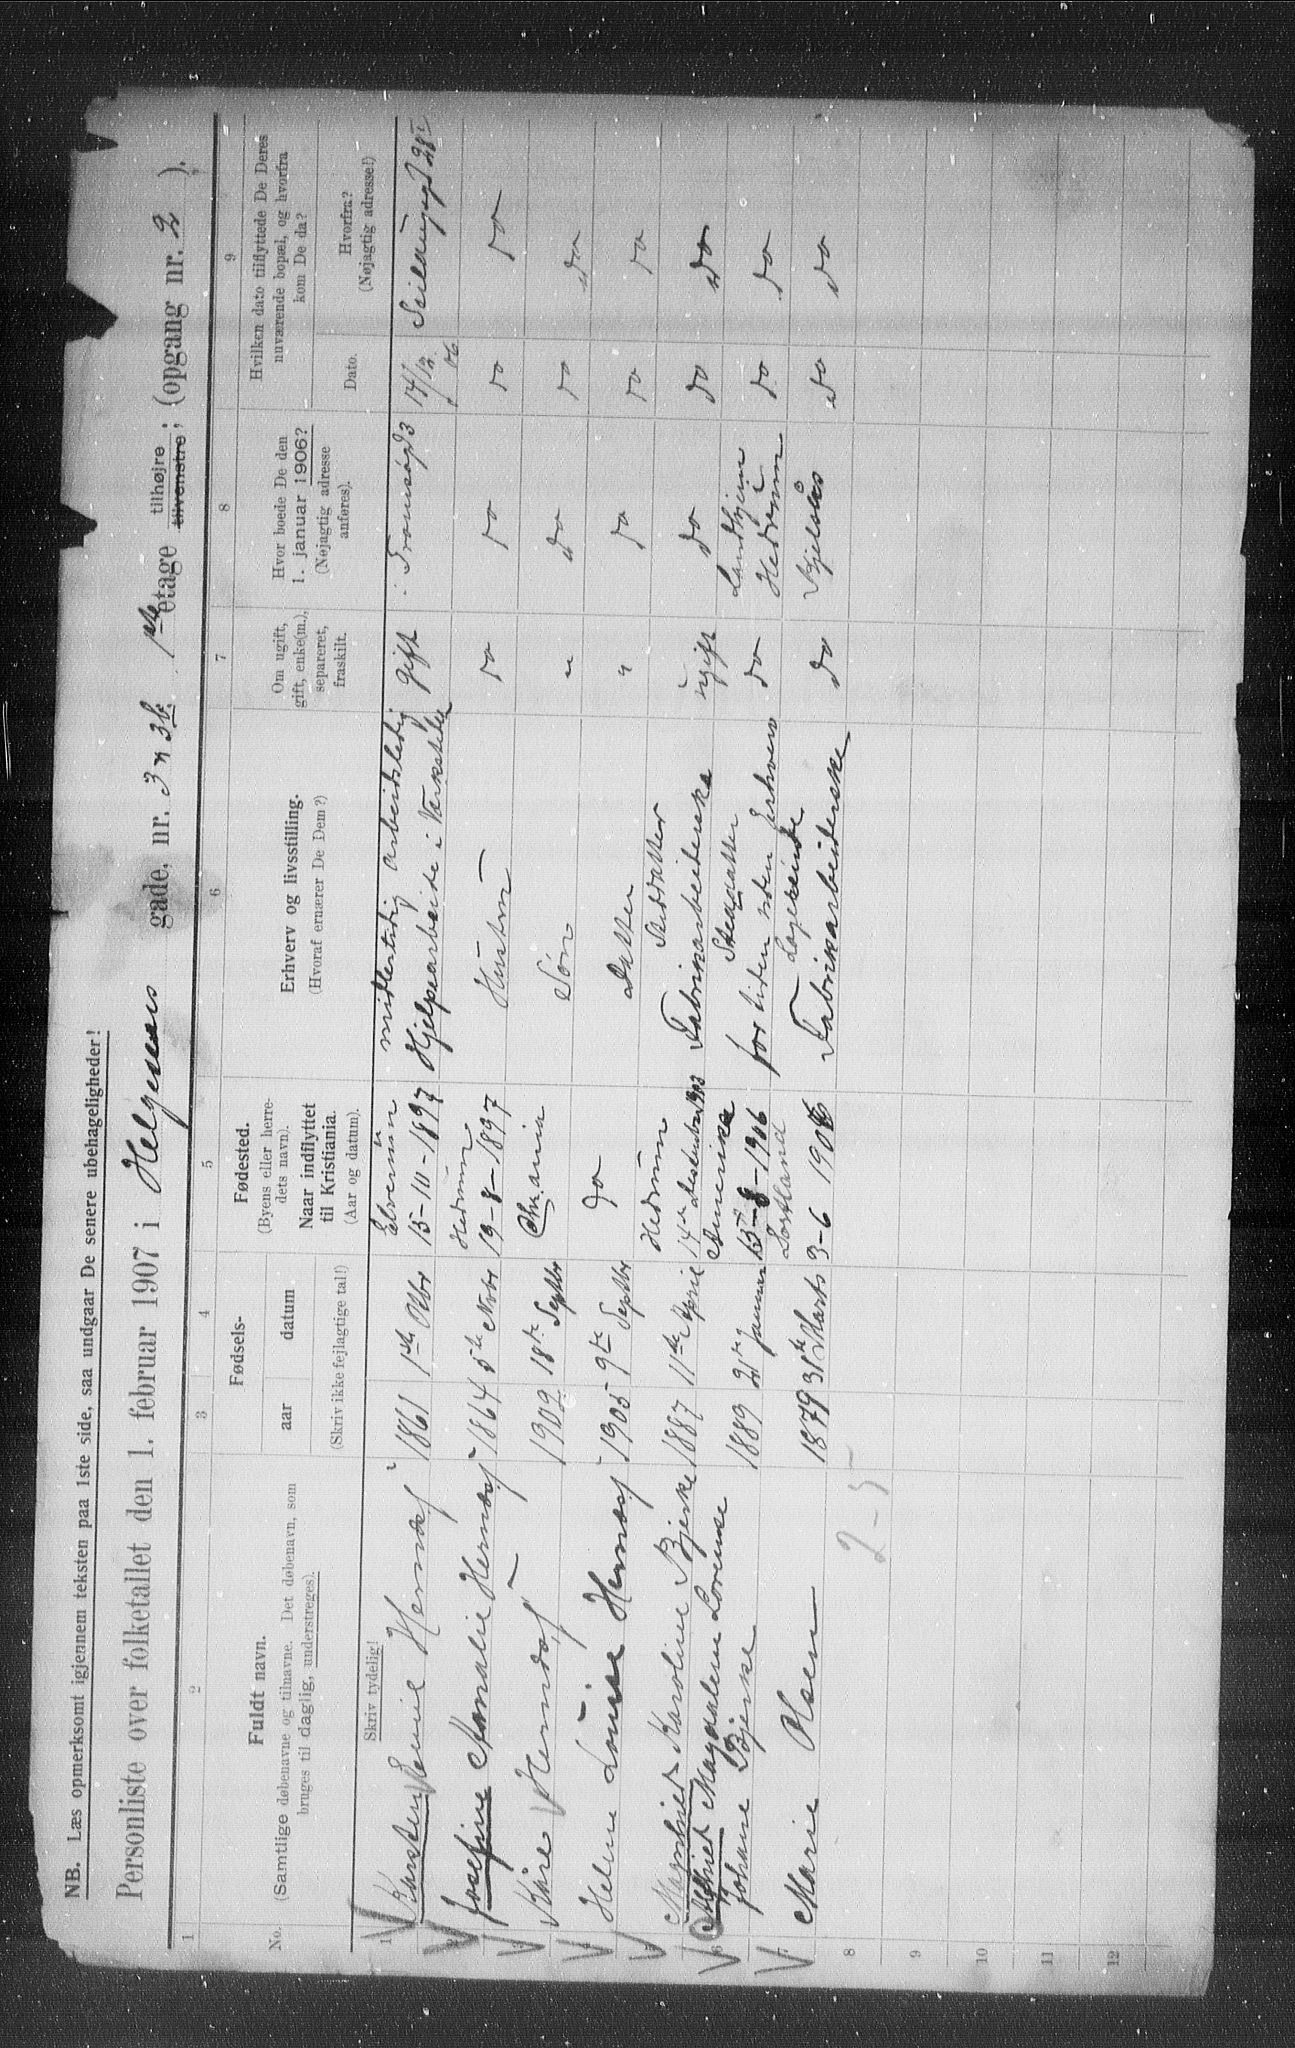 NB. Læs opmerksomt igjennem teksten paa 1ste side, saa undgaar De senere ubehageligheder!
Personliste over folketallet den 1. februar 1907 i Helgesens gade, nr. 3 3b. 1ste etage tilhøjre tilvenstre; (opgang nr. 2 ).
1 2 3 4 5 6 7 8 9
No.
Fuldt navn.
(Samtlige døbenavne og tilnavne. Det døbenavn, som
bruges til daglig, understreges).
Skriv tydelig!
Fødsels-
aar datum
(Skriv ikke fejlagtige tal!)
Fødested.
(Byens eller herre-
dets navn).
Naar indflyttet
til Kristiania.
(Aar og datum).
Erhverv og livsstilling.
(Hvoraf ernærer De Dem?)
Om ugift,
gift, enke(m.),
separeret,
fraskilt.
Hvor boede De den
1. januar 1906?
(Nøjagtig adresse
anføres).
Hvilken dato tilflyttede De Deres
nuværende bopæl, og hvorfra
kom De da?
Dato.
Hvorfra?
(Nøjagtig adresse!)
1 Karsten Emil Herndorf 1861 1ste Elverum 15-10-1897 midlertidig arbeidsledig Hjelpearbeide i Værksted gift Tromsøgd 3 14/12 06 Seildugsgd 28
2 Josefine Amalie Herndorf 1864 5te Novbr Hedrum 19-8-1897 Hustru do do do do
3 Kåre Herndorf 1902 18te Septbr Chr.ania Søn " do do do
4 Helene Louise Herndorf 1905 9te Septbr do Datter " do do do
5 Margthe Karoline Bjerke 1887 11te April Hedrum 14de 1903 Steddatter Fabrikarbeiterske ugift do do do
6 Magdalene Lovense Johane Bjerke 1889 21te Januar Amerika 13-8-1906 Steddatter for tiden uden Erhverv do Hedrum do do
7 Marie Olsen 1879 31te Marts 3-6 1906 Logerende Fabrikarbeiderske do Bjelsås do do
8
9
10
11
12
2-5